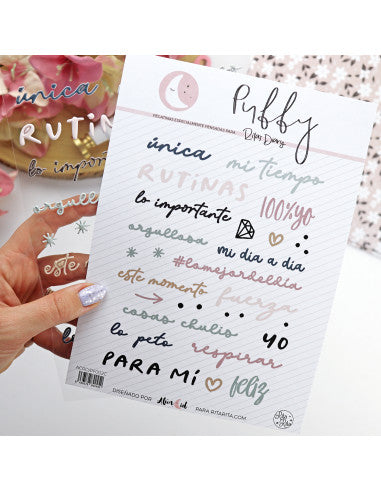 única
RUTINAS
lo importante
orgullosa
este
Puffy
PEGATINAS ESPECIALMENTE PENSADAS PARA
Ritas Diary
única mi tiempo
RUTINAS
lo importante 100%yo
orgullosa mi día a día
#lomejordeldía
este momento fuerza
cosas chulis
yo
lo peto respirar
PARA MÍ feliz
DISEÑADO POR PARA RITARITA.COM